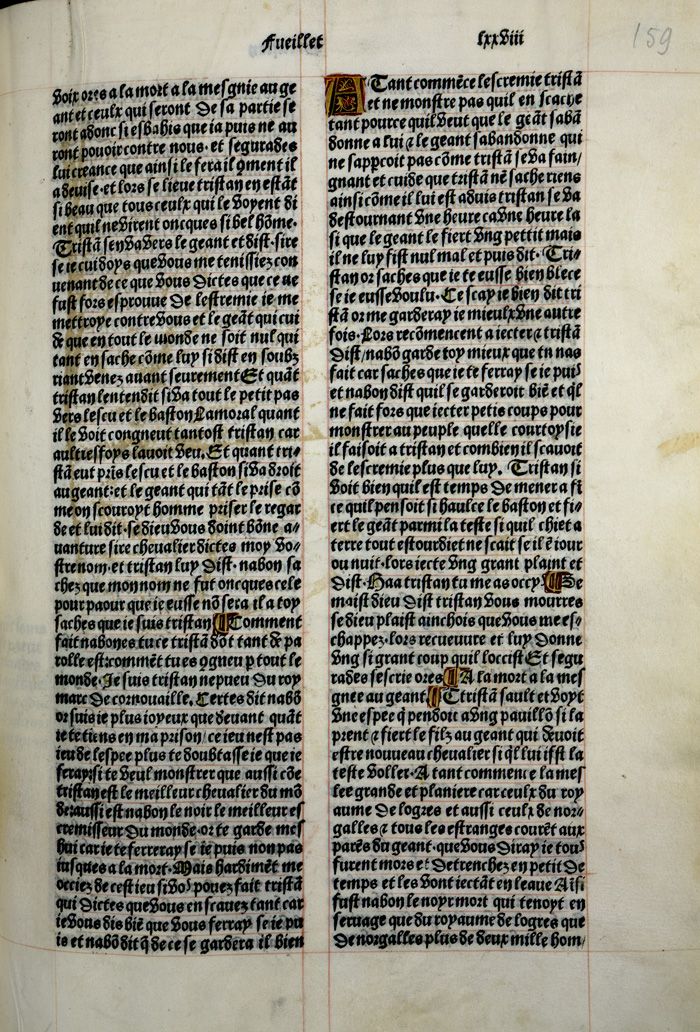 Fueillet lxxviii
159
voix ores a la mort a la mesgnie au ge
ant et ceulx qui seront de sa partie se
ront adonc si esbahis que ia puis ne au
ront pouoir contre nous. et segurades
lui creance que ainsi le fera il cõment il
a deuise. et lors se lieue tristan en estãt
si beau que tous ceulx qui le voyent di
ent quil ne virent oncques si bel hõme.
Tristã sen va vers le geant et dist. sire
se ie cuidoys que vous me tenissiez con
uenant de ce que vous dictes que ce ne
fust fors esprouue de lestremie ie me
mettroye contre vous et le geãt qui cui
de que en tout le monde ne soit nul qui
tant en sache cõme luy si dist en soubz
riant venez auant seurement Et quãt
tristan lentendit si va tout le petit pas
vers lescu et le baston Lamoral quant
il le voit congneut tantost tristan car
aultresfoys lauoit veu. Et quant tri⸗
stã eut pris lescu et le baston si va droit
au geant. et le geant qui tãt le prise cõ
me on scouroyt homme priser le regar
de et lui dit. se dieu vous doint bõne a⸗
uanture sire cheualier dictes moy vo⸗
stre nom. et tristan luy dist. nabon sa
chez que mon nom ne fut oncques cele
pour paour que ie eusse nõ sera il a toy
saches que ie suis tristan ¶ Comment
fait nabon es tu ce tristã dõt tant de pa
rolle est. commẽt tu es ꝯgneu ꝑ tout le
monde. Je suis tristan nepueu du roy
marc de cornouaille. Certes dit nabõ
or suis ie plus ioyeux que deuant quãt
ie te tiens en ma prison. ce ieu nest pas
ieu de lespee plus te doubtasse ie que ie
feray. si te veul monstrer que aussi cõe
tristan est le meilleur cheualier du mõ
de. aussi est nabon le noir le meilleur es
cremisseur du monde. or te garde mes
hui car ie te ferreray se ie puis non pas
iusques a la mort. Mais hardimẽt me
occiez de cest ieu si voꝰ pouez fait tristã
qui dictes que vous en scauez tant car
ie vous dis biẽ que vous ferray se ie pu
is et nabõ dit q̃ de ce se gardera il bien
ATant commẽce lescremie tristã
et ne monstre pas quil en scache
tant pource quil veut que le geãt sabã
donne a lui ⁊ le geant sabandonne qui
ne sapꝑcoit pas cõme tristã se va fain⸗
gnant et cuide que tristã ne sache riens
ainsi cõme il lui est aduis tristan se va
destournant vne heure ca vne heure la
si que le geant le fiert vng pettit mais
il ne luy fist nul mal et puis dit. Tri⸗
stan or saches que ie te eusse bien blece
se ie eusse voulu. Ce scay ie bien dit tri
stã or me garderay ie mieulx vne autre
fois. Lors recõmencent a iecter ⁊ tristã
dist/ nabõ garde toy mieux que tu nas
fait car saches que ie te ferray se ie puiꝰ
et nabon dist quil se garderoit biẽ et q̃l
ne fait fors que iecter petis coups pour
monstrer au peuple quelle courtoysie
il faisoit a tristan et combien il scauoit
de lescremie plus que luy. Tristan si
voit bien quil est temps de mener a fi
ce quil pensoit si haulce le baston et fi⸗
ert le geãt parmi la teste si quil chiet a
terre tout estourdi et ne scait se il ẽ iour
ou nuit. lors iecte vng grant plaint et
dist. Haa tristan tu me as occy. ¶ Se
maist dieu dist tristan vous mourres
se dieu plaist ainchois que vous me es⸗
chappez. lors recueuure et luy donne
vng si grant coup quil loccist Et segu
rades sescrie ores ¶ A la mort a la mes
gnee au geant. ¶ Ttristã sault et voyt
vne espee q̃ pendoit a vng pauillõ si la
prent ⁊ fiert le filz au geant qui deuoit
estre nouueau cheualier si q̃l lui fist la
teste voller. A tant commence la mes
lee grande et planiere car ceulx du roy
aume de logres et aussi ceulx de nor⸗
galles ⁊ tous les estranges courẽt aux
parẽs du geant. que vous diray ie touꝰ
furent mors et detrenchez en petit de
temps et les vont iectãt en leaue Aĩsi
fust nabon le noyr mort qui tenoyt en
seruage que du royaume de logres que
de norgalles plus de deux mille hom⸗